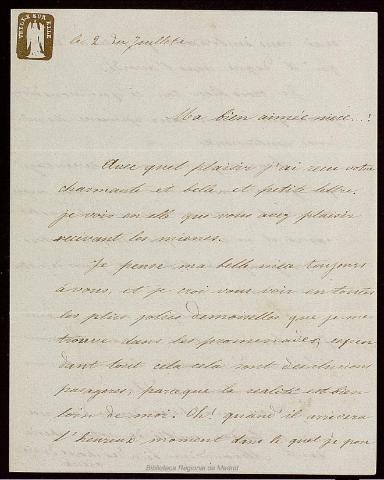 VEILLE SUR ELLE
le 2 du Juillete
Ma bien aimée niece...!
Avec quel plaisir j'ai reçu votre
charmante et belle, et petite lettre,
je vois en elle que vous avez plaisir
recivant les miennes.
Je pense ma belle niece toujours
à vous, et je croi vous voir en toutes
les plus jolies demoiselles que je me
trouve dans les promenades, cepen
dant tout cela sont des
parceque la realité est bien
loin de moi. Oh! quand il arrivera
l'heureux moment dans le quel je pou
Biblioteca Regional de Madrid